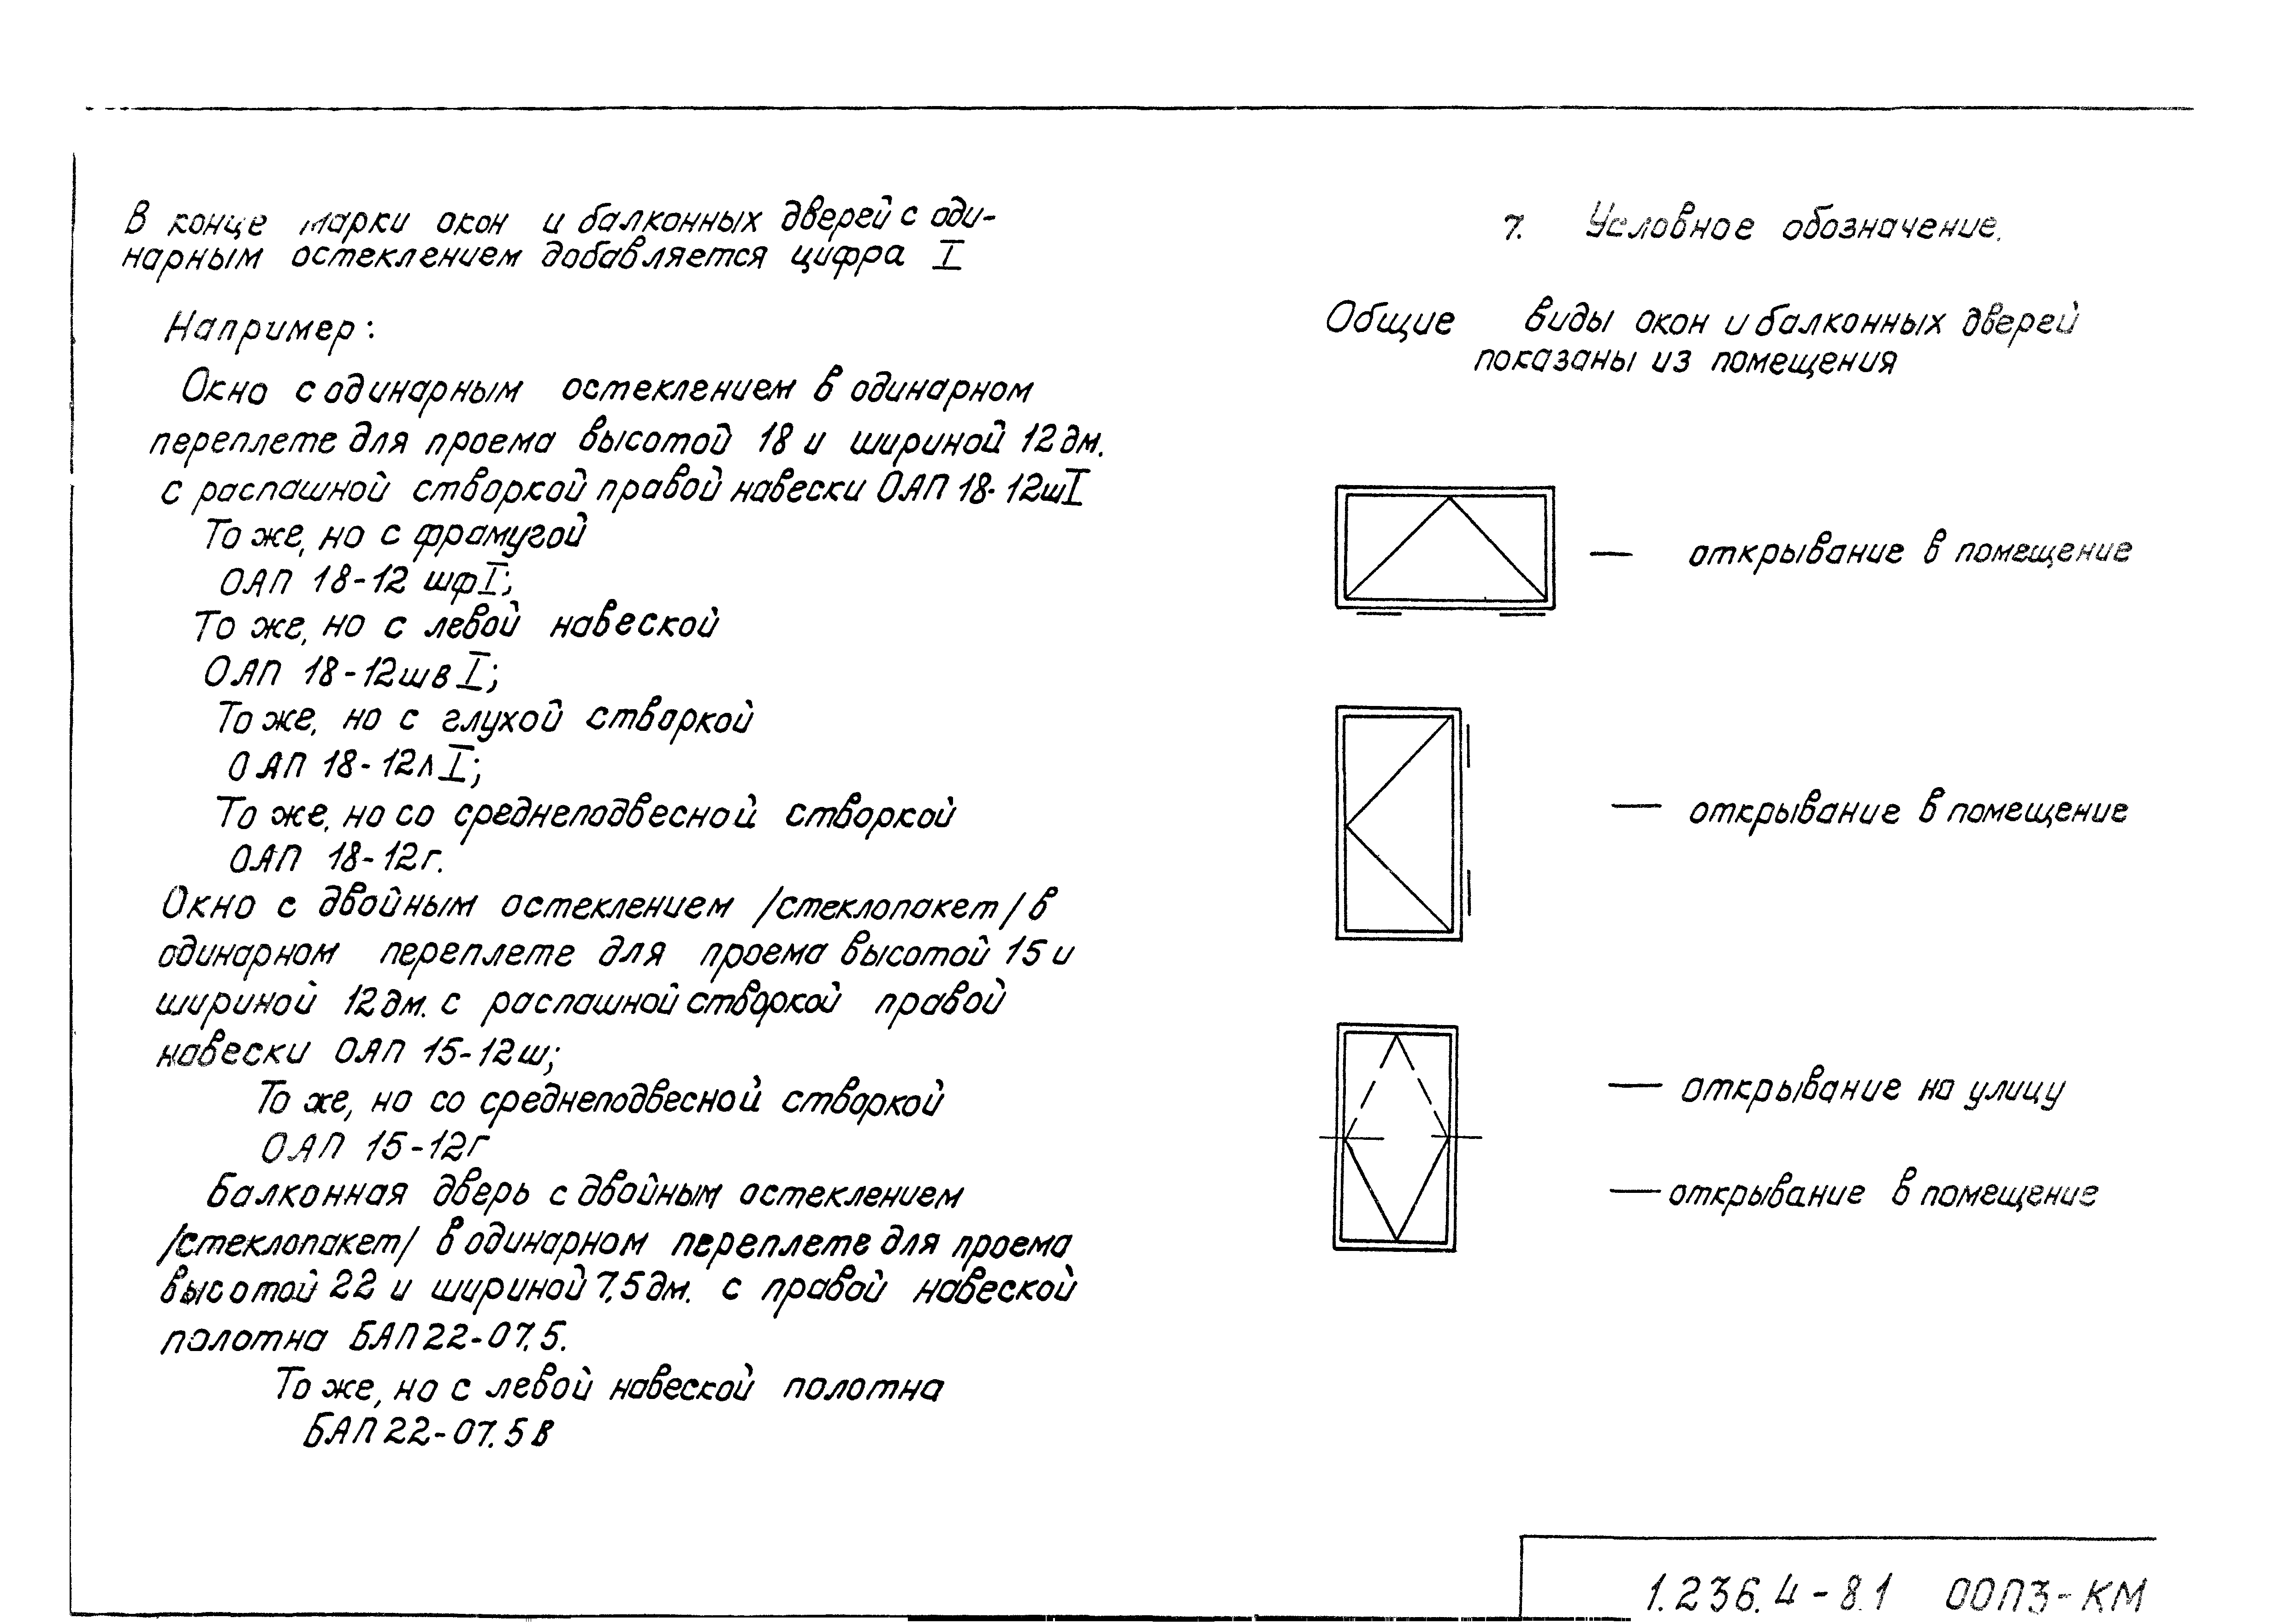 В конце марки окон и балконных дверей с оди-
нарным остеклением добавляется цифра I
Например:
Окно с одинарным остеклением в одинарном
переплете для проема высотой 18 и шириной 12 дм.
с распашной створкой правой навески ОАП 18-12шI
То же, но с фрамугой
ОАП 18-12 шфI;
То же, но с левой навеской
ОАП 18-12шв I;
То же, но с глухой створкой
ОАП 18-12л I;
То же, но со среднеподвесной створкой
ОАП 18-12г.
Окно с двойным остеклением /стеклопакет/ в
одинарном переплете для проема высотой 15 и
шириной 12 дм. с распашной створкой правой
навески ОАП 15-12ш;
То же, но со среднеподвесной створкой
ОАП 15-12г
Балконная дверь с двойным остеклением
/стеклопакет/ в одинарном переплете для проема
высотой 22 и шириной 7,5 дм. с правой навеской
полотна БАП 22-07.5.
То же, но с левой навеской полотна
БАП 22-07.5 в
7. Условное обозначение.
Общие виды окон и балконных дверей
показаны из помещения
— открывание в помещение
— открывание в помещение
— открывание на улицу
— открывание в помещение
1.236.4-8.1 00ПЗ-КМ